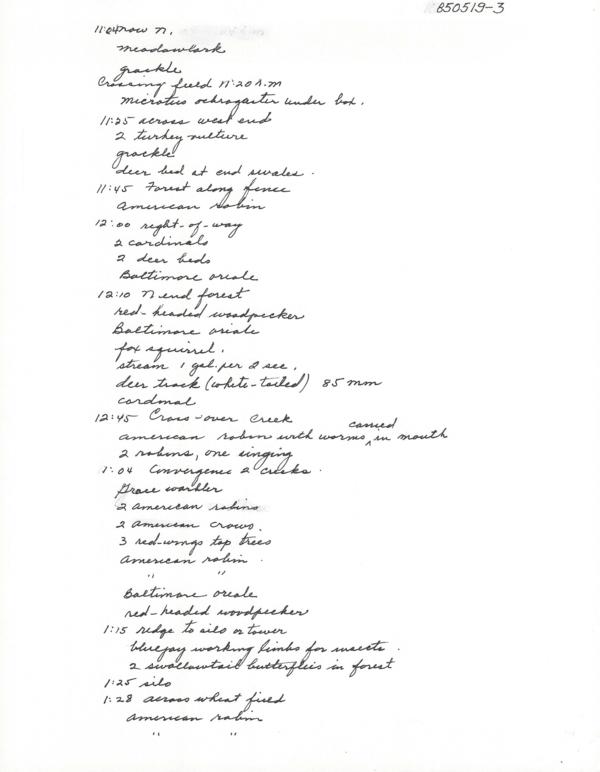 850519-3
11:04 row n.
meadowlark
grackle
Crossing field 11:20 A.M
microtus ochrogaster under box.
11:25 across west end
2 turkey vulture
grackle
deer bed at end swales.
11:45 Forest along fence
american robin
12:00 right-of-way
2 cardinals
2 deer beds
Baltimore oriole
12:10 N end forest
red-headed woodpecker
Baltimore oriole
fox squirrel.
stream 1 gal. per 2 sec.
deer track (white-tailed) 85 mm
cardinal
12:45 Cross-over creek
american robin with worms carried in mouth
2 robins, one singing
1:04 Convergence 2 creeks.
warbler
2 american robins
2 american crows.
3 red-wings top trees
american robin
" "
Baltimore oriole
red-headed woodpecker
1:15 ridge to silo or tower
bluejay working limbs for insects.
2 swallowtail butterflies in forest
1:25 silo
1:28 across wheat field
american robin
" "